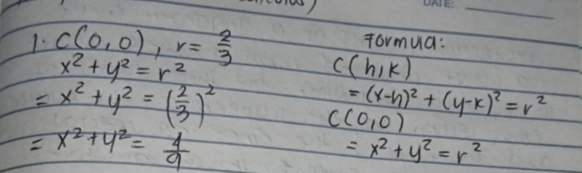 DATE:
1. C(0,0), r = 2/3
x² + y² = r²
= x² + y² = (2/3)²
= x² + y² = 4/9
Formua:
C(h,k)
= (x-h)² + (y-k)² = r²
C(0,0)
= x² + y² = r²